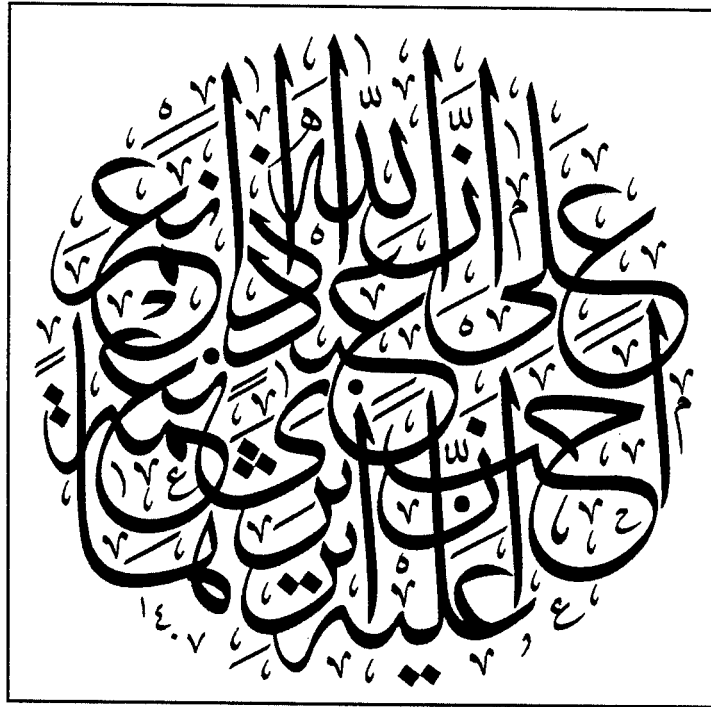 إن الله إذا أنعم على عبد
نعمة أحب أن يرى
أثرها عليه
١٤٠٧